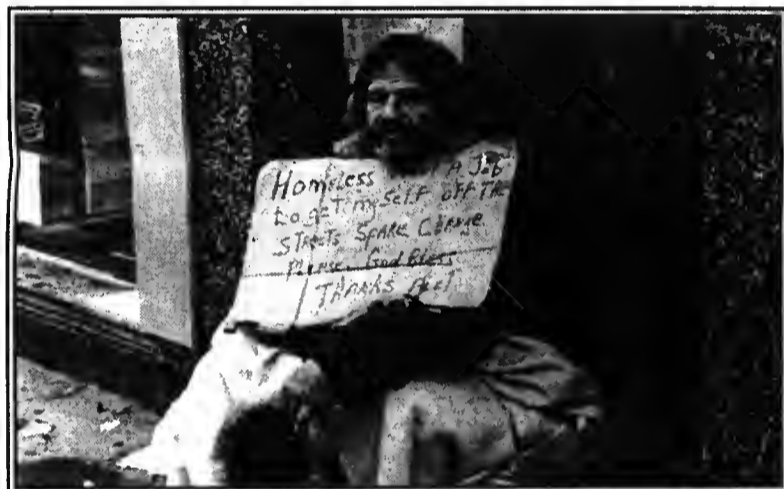 Homeless A Job
to get myself off the
Streets Spare Change
Please God Bless
Thanks